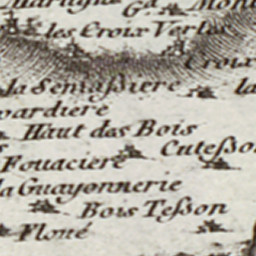 les Croix Vertes
Croix
la Semaßiere la
pardiere
Haut das Bois
Cuteßo
Fouaciere
la Guayonnerie
Bois Teßon
Floué